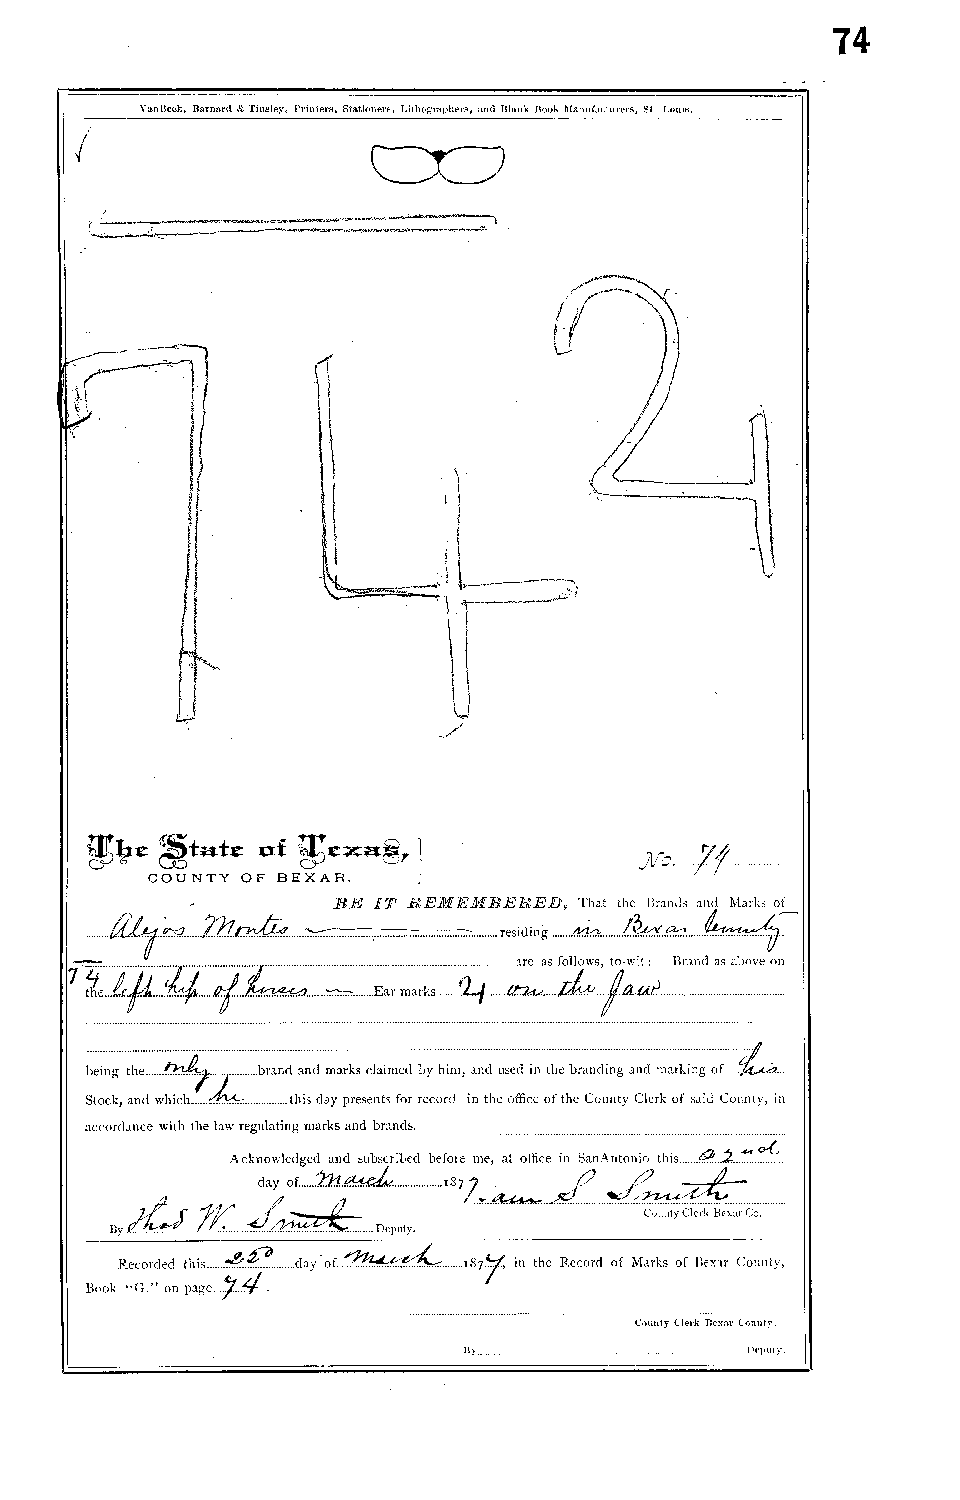 74
VanBeek, Barnard & Tinsley, Printers, Stationers, Lithographers, and Blank Book Manufacturers, St. Louis.
74 24
The State of Texas,
COUNTY OF BEXAR.
No. 74
BE IT REMEMBERED, That the Brands and Marks of
Alejos Montes residing in Bexar County
are as follows, to-wit: Brand as above on
74
the left hip of horses Ear marks 24 on the Jaw
being the only brand and marks claimed by him, and used in the branding and marking of his
Stock, and which he this day presents for record in the office of the County Clerk of said County, in
accordance with the law regulating marks and brands.
Acknowledged and subscribed before me, at office in San Antonio this 22nd
day of March 1877. Sam S Smith
County Clerk Bexar Co.
By Thad W. Smith Deputy.
Recorded this day of March 1877, in the Record of Marks of Bexar County,
Book "G." on page 74.
County Clerk Bexar County.
By Deputy.